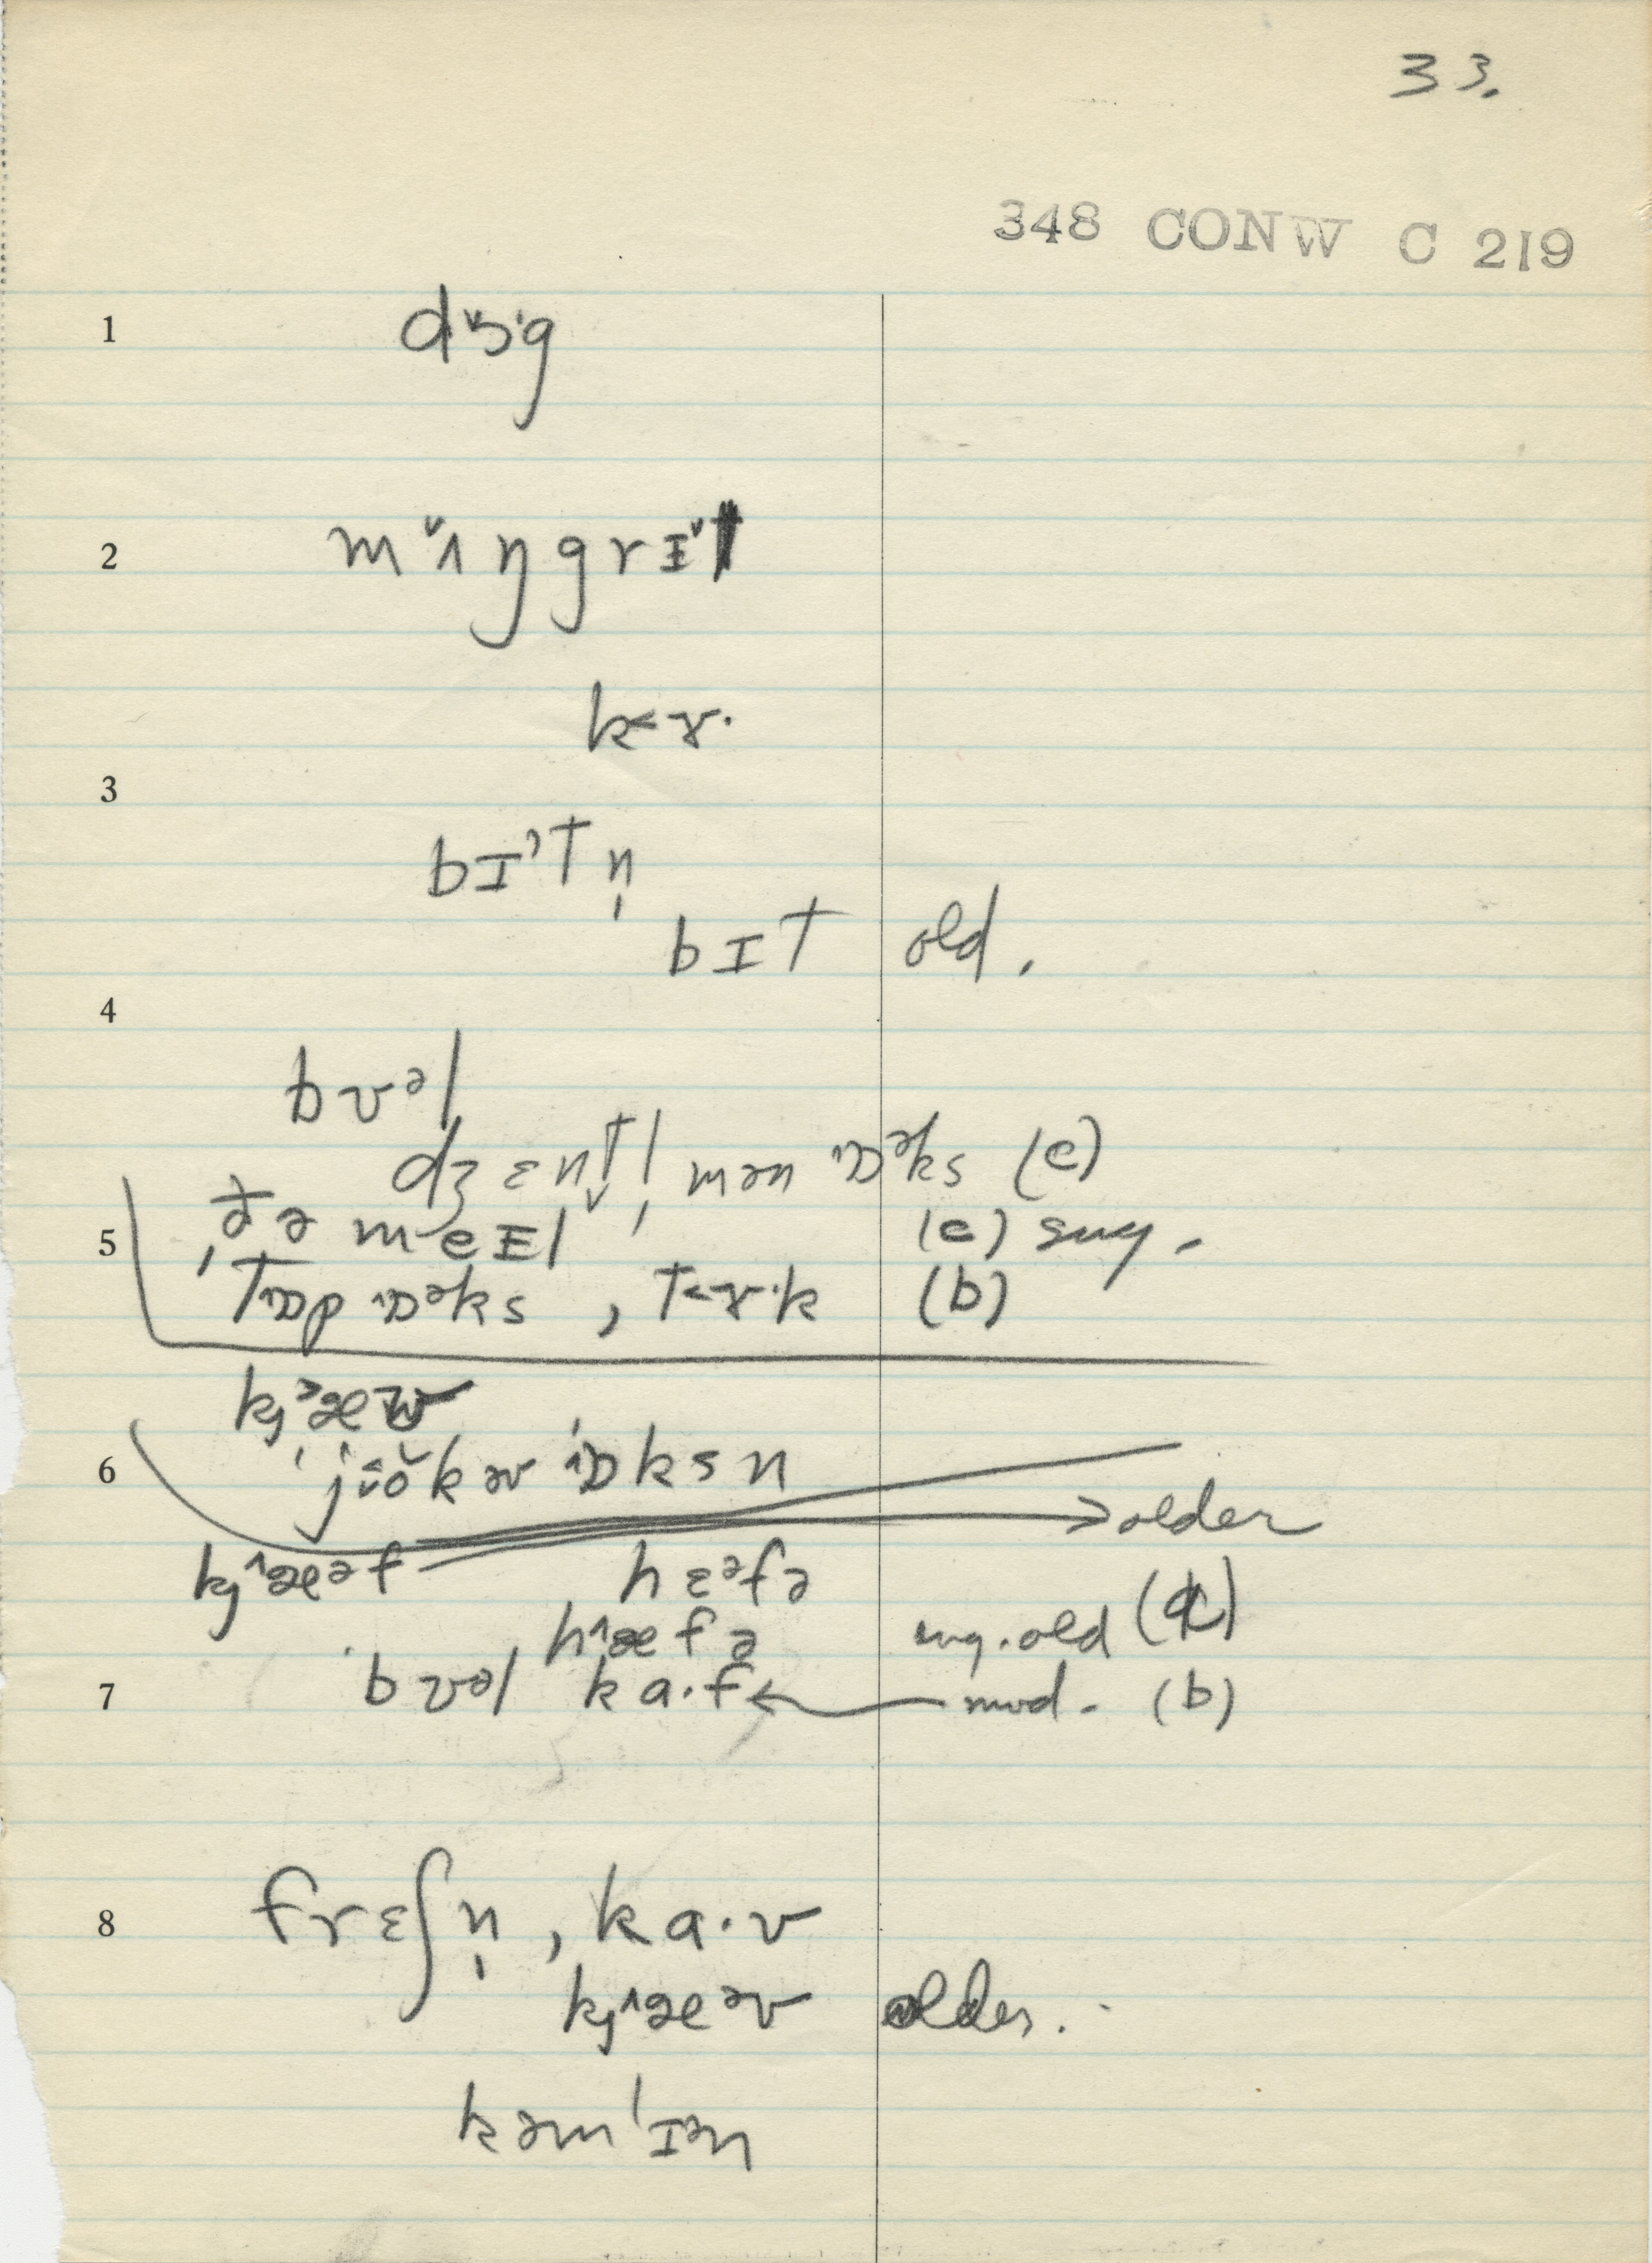 33.
348 CONW C 219
1 dɔ˞g
2 mʌŋgrɪt
k<ɤ·
3
bɪ'tn̩
bɪt old.
4
bʊəl
dʒɛnt̬l̩mən ɒəks (c)
5 ðə me​ɪl (c) sug.
tɒp ɒəks, t<ɤ·k (b)
kjæʊ
6 jôŏkəʊ ɒksn
→older
kjæəf hɛəfə
hæfə sug. old (c)
7 bʊəl ka·f ← mod. (b)
8 frɛʃn̩, ka·v
kjæəv older.
kəm'ɪən